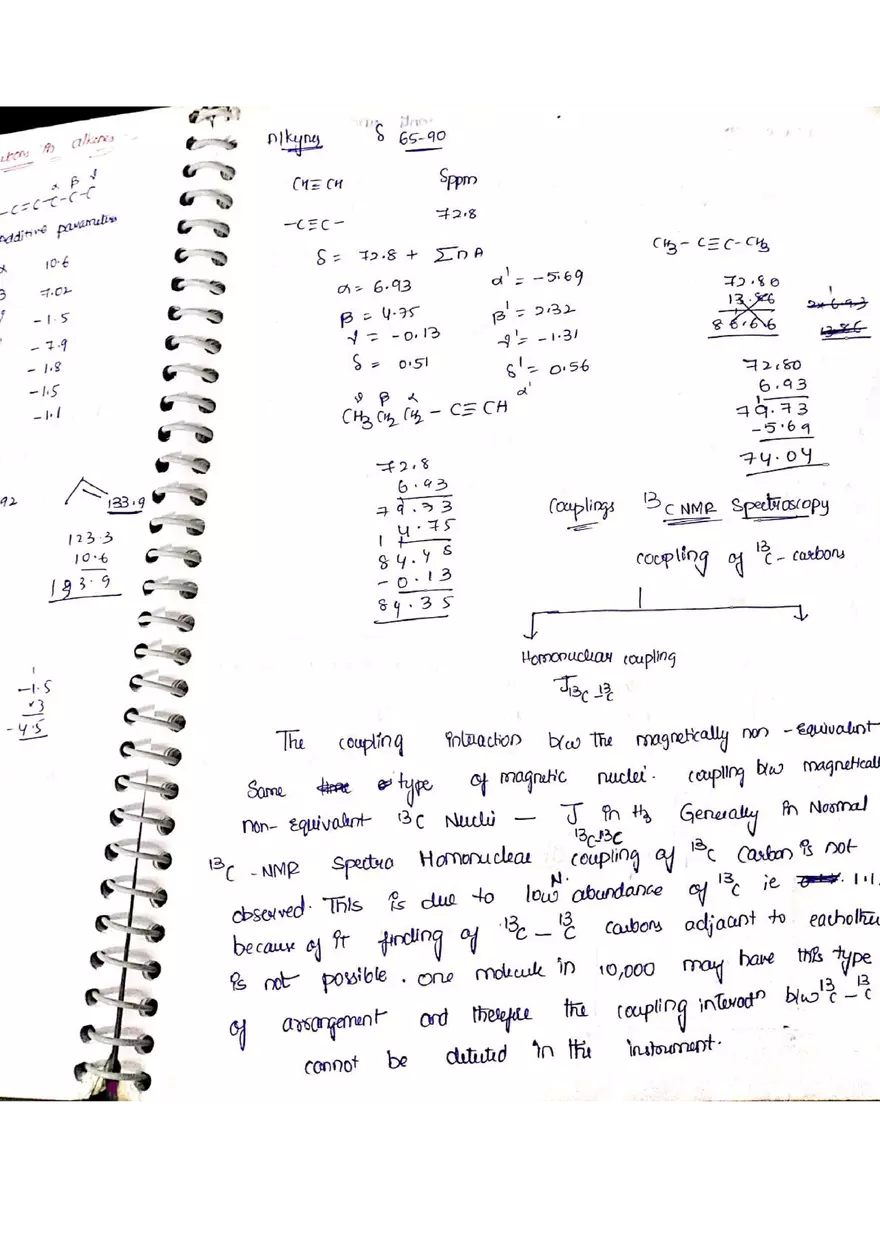 α β γ
-C=C-C-C-C
additive parameters
10.6
7.02
-1.5
-7.9
-1.8
-1.5
-1.1
92
133.9
123.3
10.6
133.9
-1.5
×3
-4.5
Alkynes δ 65-90
CH≡CH δppm
-C≡C- 72.8
δ = 72.8 + Σ n A
α = 6.93 α' = -5.69
β = 4.75 β' = 2.32
γ = -0.13 γ' = -1.31
δ = 0.51 δ' = 0.56
γ β α α'
CH3 CH2 CH2 - C≡CH
72.8
6.93
79.33
4.75
84.48
-0.13
84.35
CH3 - C≡C-CH3
72.80
13.86
86.66
2×6.93
13.86
72.80
6.93
79.73
-5.69
74.04
Couplings 13C NMR Spectroscopy
coupling of 13C - carbons
Homonuclear coupling
J13C-13C
The coupling intraction b/w the magnetically non - Equivalent
Same type of magnetic nuclei. coupling b/w magnetically
non- Equivalent 13C Nuclei — J in Hz Generally in Normal
13C-13C
13C - NMR Spectra Homonuclear coupling of 13C Carbon is not
observed. This is due to low N. abundance of 13C ie 1.1.
because of it finding of 13C - 13C carbons adjacent to eachother
is not possible. one molecule in 10,000 may have this type
of arrangement and therefore the coupling interactn b/w 13C - 13C
cannot be detected in the instrument.